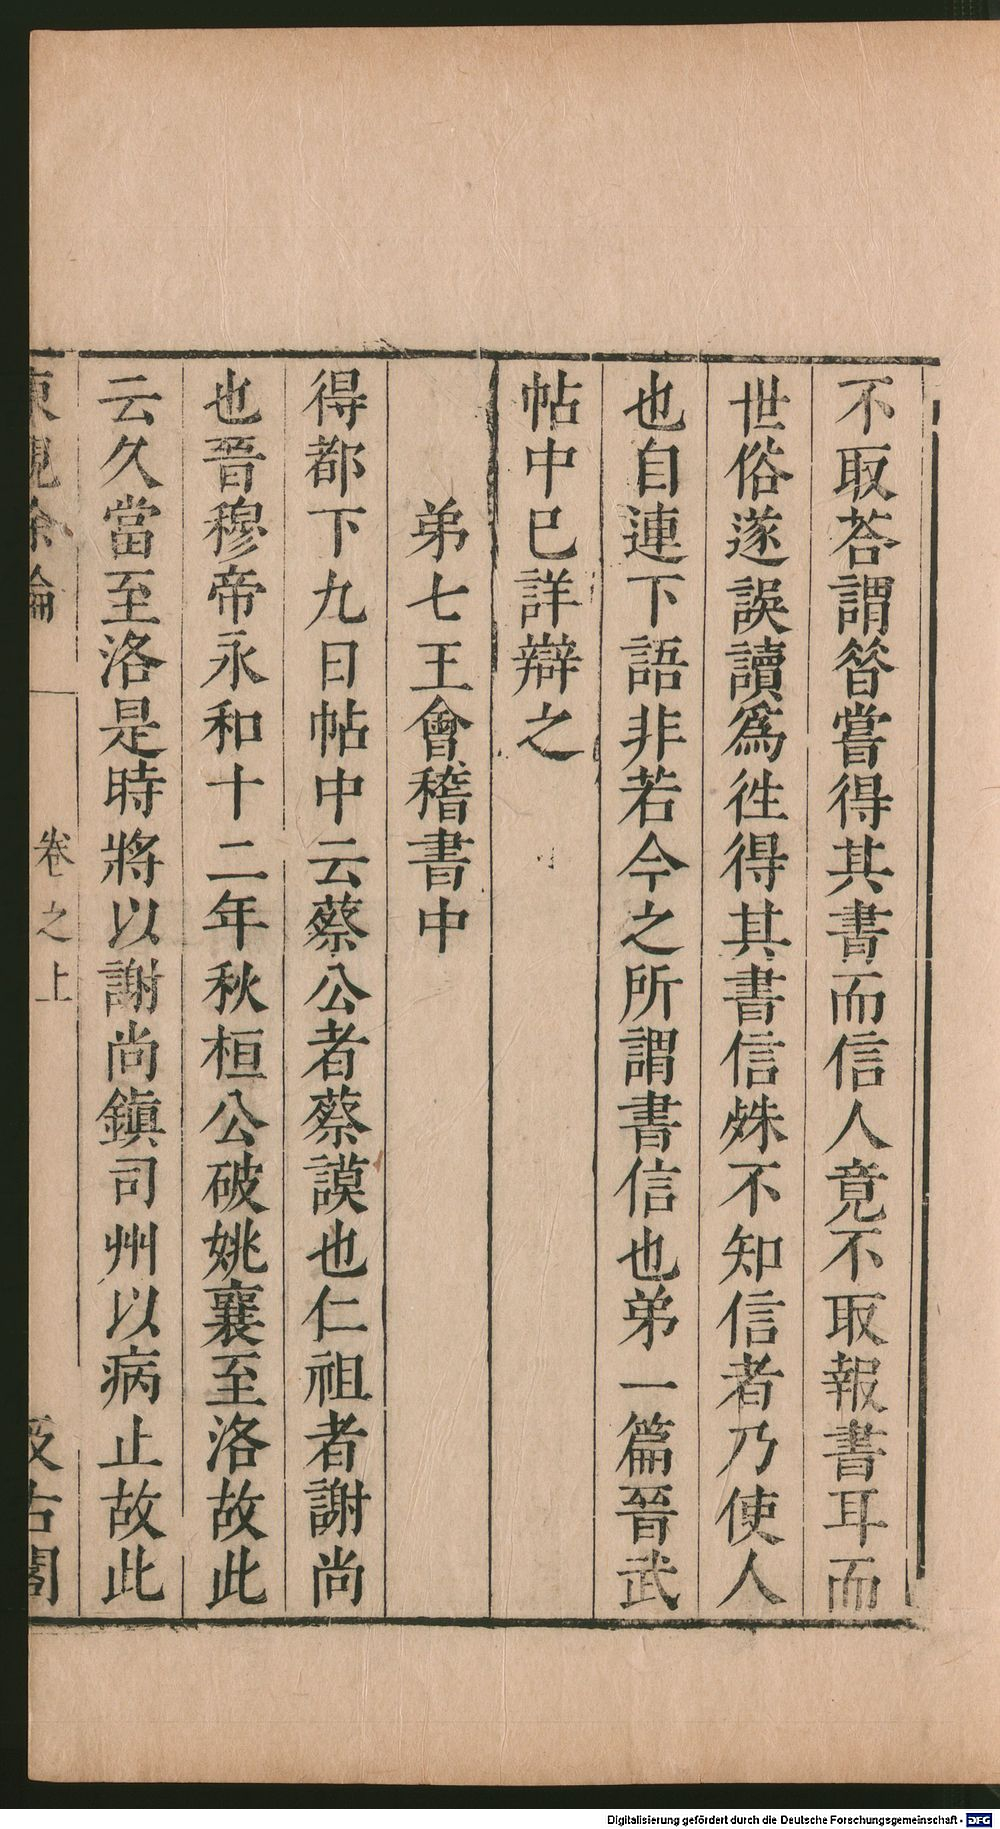 不取荅謂昝嘗得其書而信人竟不取報書耳而
世俗遂誤讀爲徃得其書信殊不知信者乃使人
也自連下語非若今之所謂書信也弟一篇晉武
帖中已詳辯之
弟七王會稽書中
得都下九日帖中云蔡公者蔡謨也仁祖者謝尚
也晉穆帝永和十二年秋桓公破姚襄至洛故此
云久當至洛是時將以謝尚鎮司州以病止故此
東觀餘論 卷之上 汲古閣
Digitalisierung gefördert durch die Deutsche Forschungsgemeinschaft - DFG